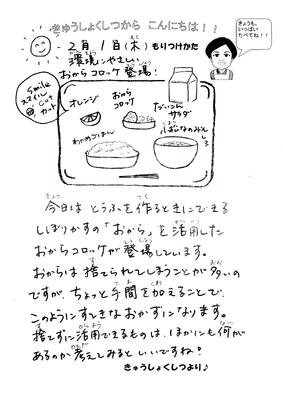 きゅうしょくしつから こんにちは！！
きょうも、
いっぱい
たべてね！！
2月1日(木) もりつけかた
環境にやさしい
おからコロッケ登場！
Smile
スマイル
Cut
カット
オレンジ
おから
コロッケ
だいこん
サラダ
わかめごはん
こまつなのみそしる
今日は とうふを作るときにできる
しぼりかすの「おから」を活用した
おからコロッケが登場しています。
おからは 捨てられてしまうことが多いの
ですが、ちょっと手間を加えることで、
このようにすてきなおかずになります。
捨てずに活用できるものは、ほかにも何が
あるのか考えてみるといいですね！
きゅうしょくしつより♪